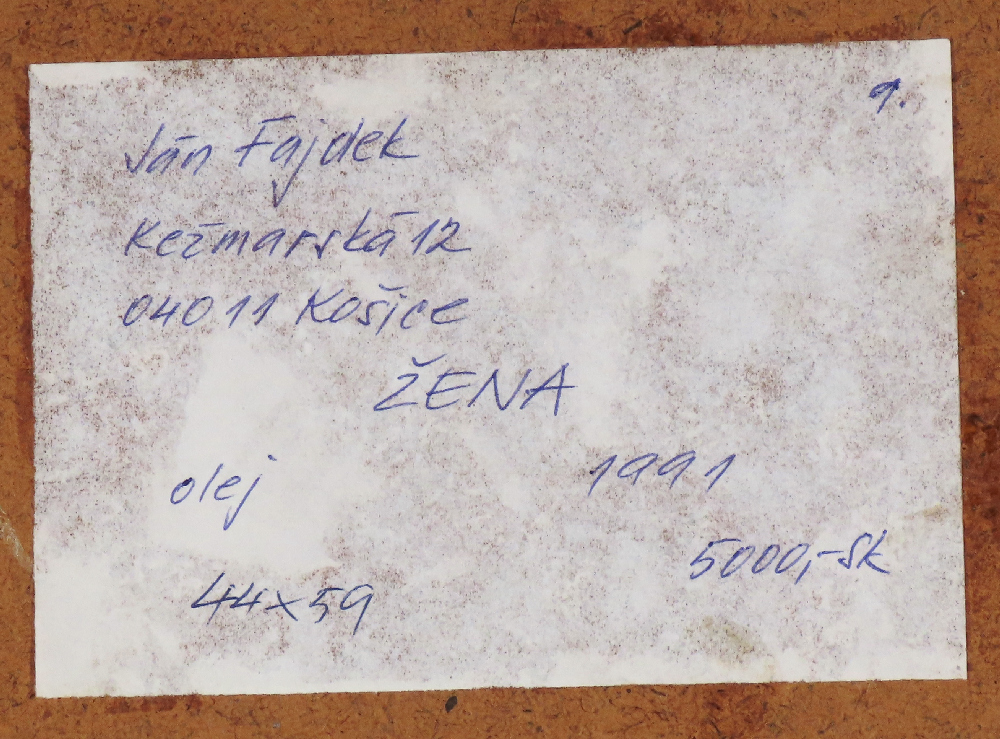 9.
Ján Fajdek
Kežmarská 12
04011 Košice
ŽENA
olej 1991
5000,-Sk
44x59